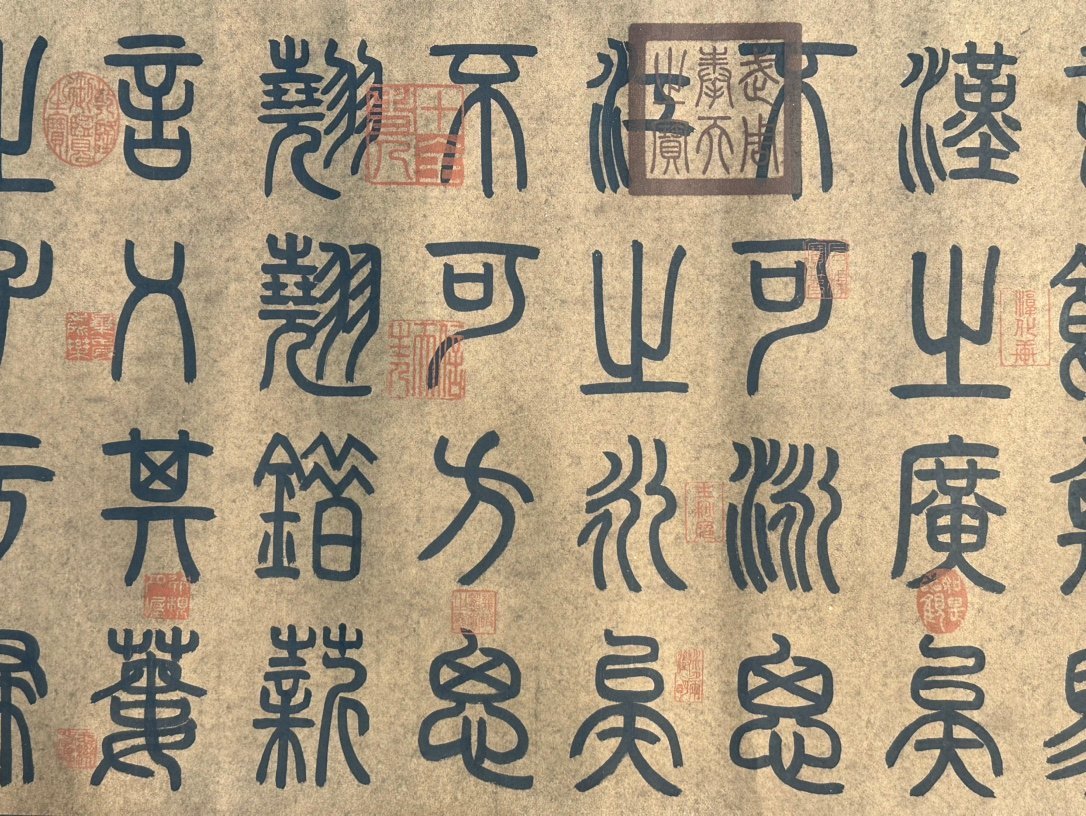 漢之廣矣
不可泳思
江之永矣
不可方思
翹翹錯薪
言乂其蔞
之子于歸
淳化軒